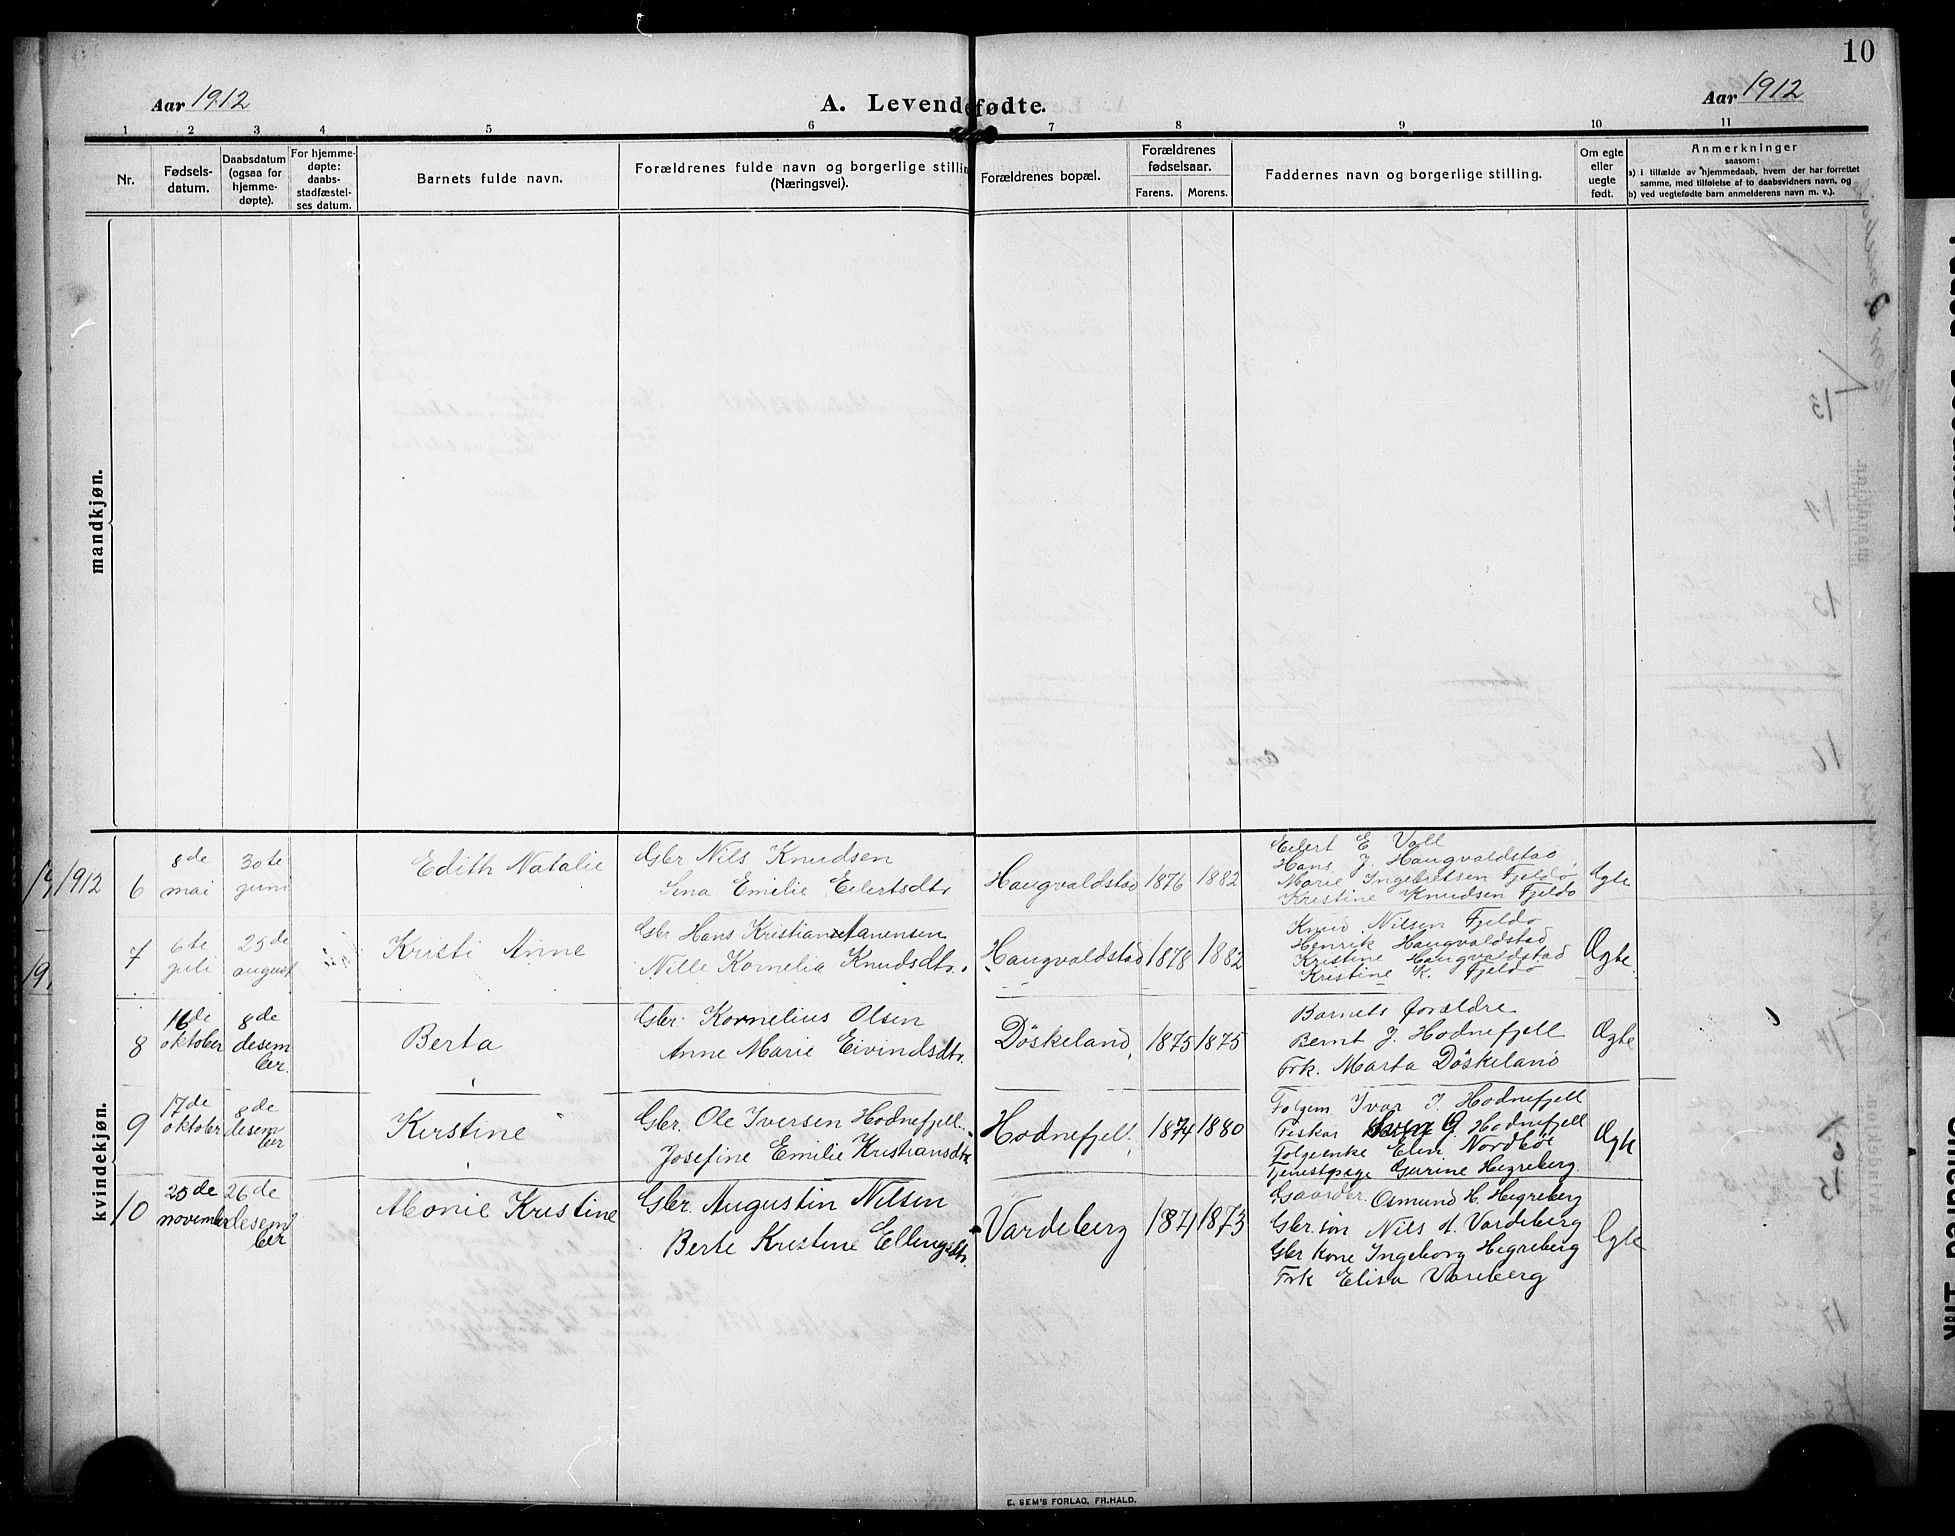 10
Aar 1912
A. Levendefødte.
Aar 1912
1 2 3 4 5 6 7 8 9 10 11
Nr.
Fødsels-
datum.
Daabsdatum
(ogsaa for
hjemme-
døpte).
For hjemme-
døpte:
daabs-
stadfæstel-
ses datum.
Barnets fulde navn.
Forældrenes fulde navn og borgerlige stilling
(Næringsvei).
Forældrenes bopæl.
Forældrenes
fødselsaar.
Farens. Morens.
Faddernes navn og borgerlige stilling.
Om egte
eller
uegte
født.
Anmerkninger
saasom:
a) i tilfælde av hjemmedaab, hvem der har forrettet
samme, med tilføielse af to daabsvidners navn, og
b) ved uegtefødte barn anmelderens navn m. v.).
mandkjøn.
kvindekjøn.
1912
6
8de
mai
30te
juni
Edith Natalie
Gbr Nils Knudsen
Sina Emilie Eilertsdtr
Haugvaldstad
1876 1882
Eilert E Vall
Hans J. Haugvaldstad
Marie Ingebretsen Fjeldø
Kristine Knudsen Fjeldø
Ægte
7
6te
juli
25de
august
Kristi Anne
Gbr Hans Kristian
Nille Kornelia Knudsdtr.
Haugvaldstad
1878 1882
Knud Nilsen Fjeldø
Henrik Haugvaldstad
Kristine Haugvaldstad
Kristine K. Fjeldø
Ægte.
8
16de
oktober
8de
desem
ber.
Berta
Gbr. Kornelius Olsen
Anne Marie Eivindsdtr.
Döskeland,
1875 1875
Barnets forældre
Bernt J. Hodnefjell
Frk. Marta Döskeland
Ægte
9
17de
oktober
8de
desem
ber
Kirstine
Gbr. Ole Iversen Hodnefjell.
Josefine Emilie Kristiansdtr
Hodnefjell.
1874 1880
Folgem Ivar J. Hodnefjell
Fiskar Sven G. Hodnefjell
Folgeenke Elin Nordböe
Tjenestpage Gurine Hegreberg.
Ægte
10
25de
november
26de
desem
ber
Monie Kristine
Gbr. Augustin Nilsen
Berte Kristine Ellingsdtr.
Vardeberg
1871 1873
Gaardbr. Osmund H. Hegreberg
Gbr.søn Nils A. Vardeberg
Gbr kone Ingeborg Hegreberg
Frk Elisa Vareberg
Ægte
E. SEM'S FORLAG, FR.HALD.